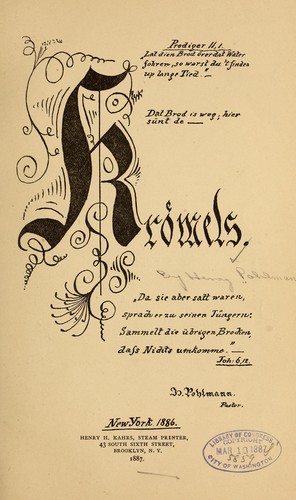 Prediger 11,1.
Lat dien Brod över dat Water
fohren, so warst du 't finden
up lange Tied."—
Dat Brod is weg; hier
sünt de —
Krömels.
By Henry Pohlmann
„Da sie aber satt waren,
sprach er zu seinen Jüngern:
Sammelt die übrigen Brocken
daß Nichts umkomme."—
Joh: 6,12.
H. Pohlmann.
Pastor.
New York 1886.
HENRY H. KAHRS, STEAM PRINTER,
43 SOUTH SIXTH STREET,
BROOKLYN, N. Y.
1887.
LIBRARY OF CONGRESS
COPYRIGHT
MAR 10 1887
5859
CITY OF WASHINGTON